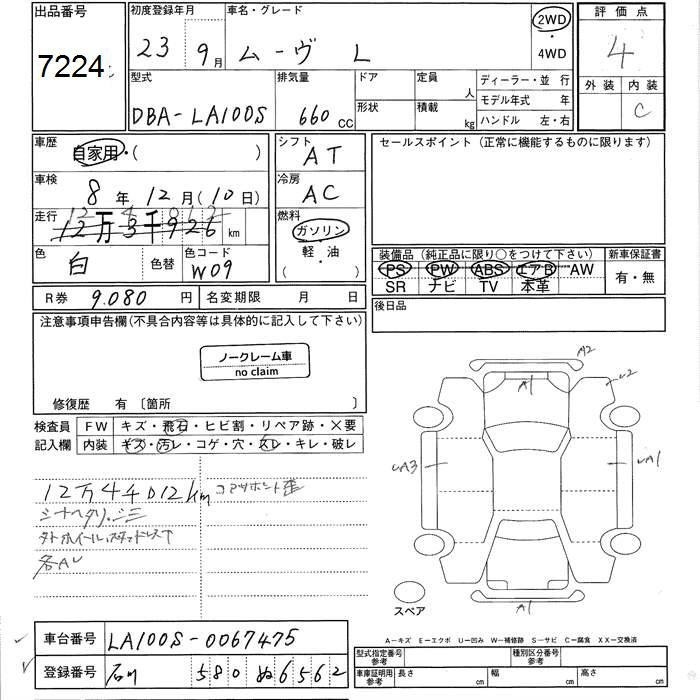 出品番号
7224
初度登録年月
23 年 9 月
車名・グレード
ムーヴ L
2WD
・
4WD
評価点
4
外装 内装
C
型式
DBA-LA100S
排気量
660 CC
ドア
形状
定員
人
積載
kg
ディーラー・並 行
モデル年式 年
ハンドル 左・右
車歴
自家用・( )
車検
8 年 12 月(10 日)
走行
12 万 3 千 926 km
色
白
色替
色コード
W09
シフト
AT
冷房
AC
燃料
ガソリン
軽・油
( )
セールスポイント (正常に機能するものに限ります)
装備品 (純正品に限り○をつけて下さい)
PS PW ABS エアB AW
SR ナビ TV 本革
新車保証書
有・無
R券 9.080 円
名変期限 月 日
後日品
注意事項申告欄(不具合内容等は具体的に記入して下さい)
ノークレーム車
no claim
修復歴 有 〔箇所 〕
検査員
記入欄
FW キズ・飛石・ヒビ割・リペア跡・×要
内装 キズ・汚レ・コゲ・穴・スレ・キレ・破レ
12万4千012km
コアサポート歪
シートヘタリ、シミ
タイヤホイール、スタッドレス
各AU
A2
A1
U2
UA3
UA1
A1
スペア
A-キズ E-エクボ U-凹み W-補修跡 S-サビ C-腐食 XX-交換済
車台番号 LA100S-0067475
登録番号 石川 580 ぬ 6562
型式指定番号
参考
種別区分番号
参考
車庫証明用
参考
長さ 幅 高さ